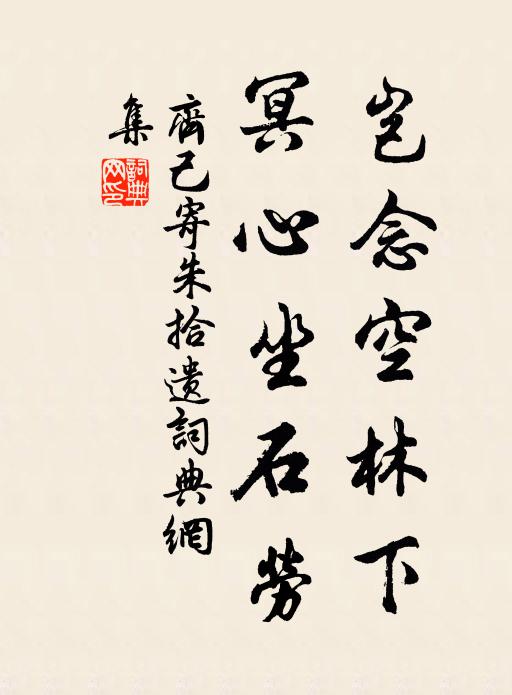 岂念空林下
冥心坐石勞
齊己寄朱拾遺詞典網
集
詞典
网印